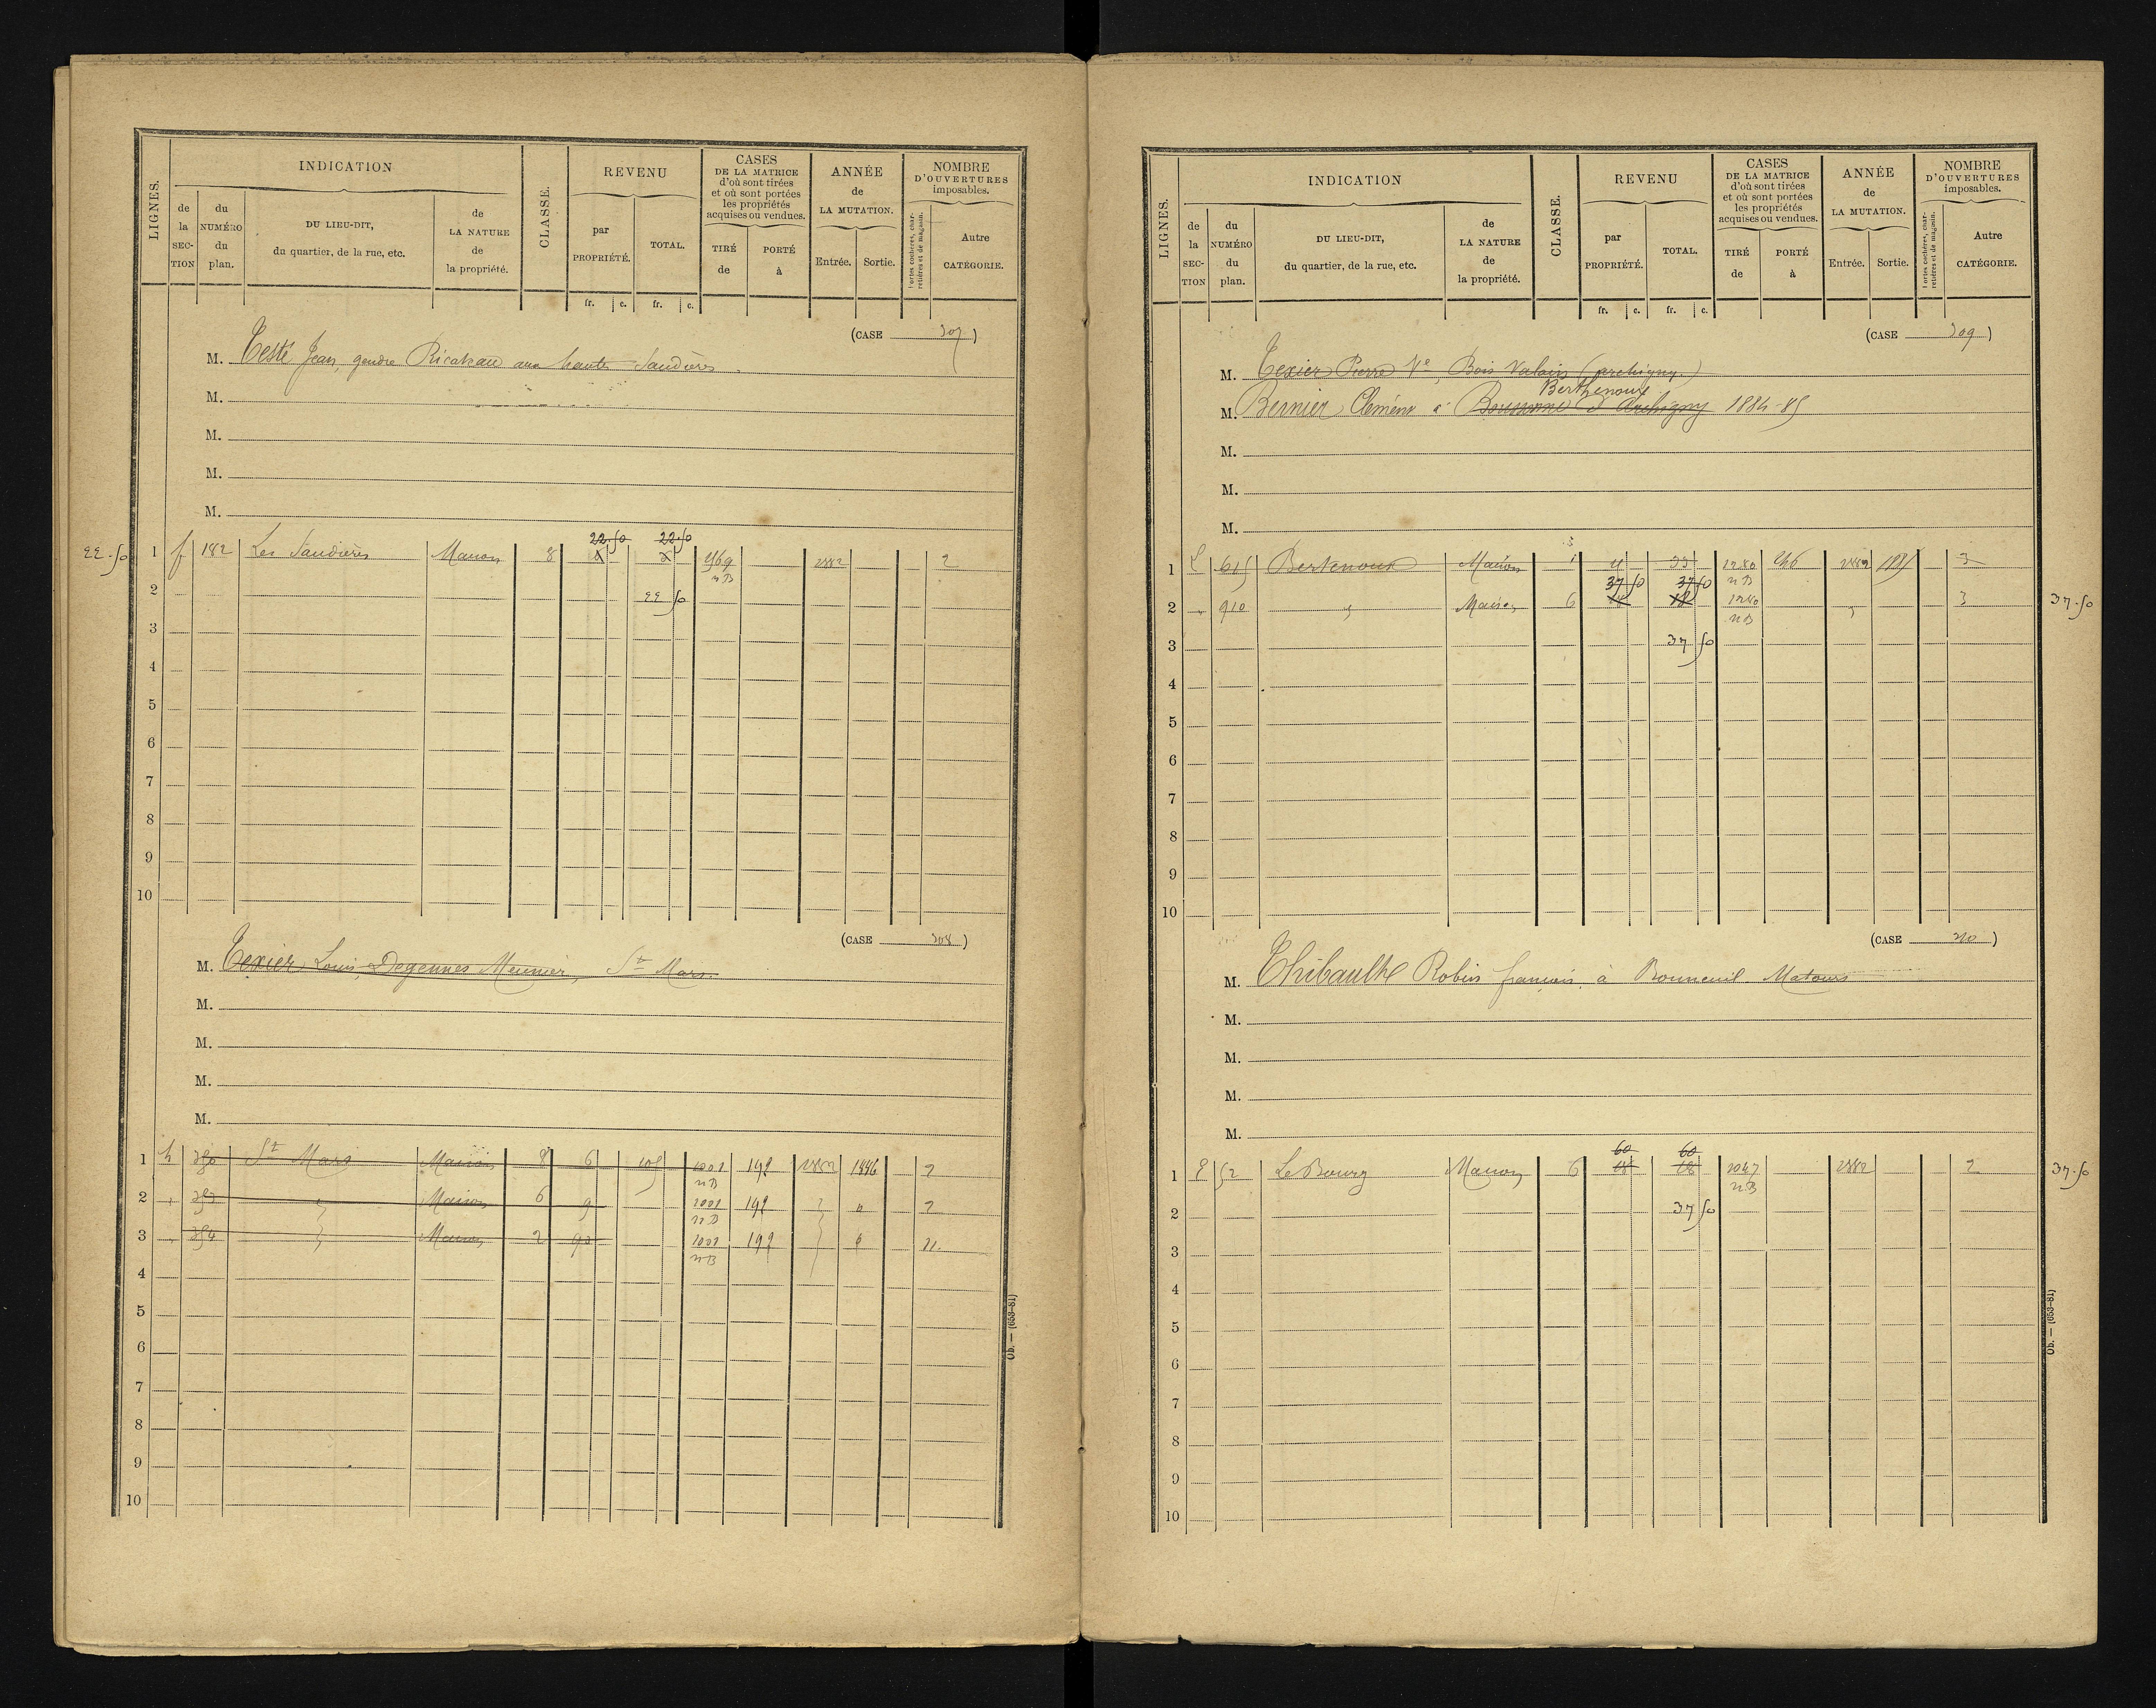 LIGNES. INDICATION CLASSE. REVENU CASES DE LA MATRICE d'où sont tirées et où sont portées les propriétés acquises ou vendues. ANNÉE de LA MUTATION. NOMBRE D'OUVERTURES imposables.
de la SECTION du NUMÉRO du plan. DU LIEU-DIT, du quartier, de la rue, etc. de LA NATURE de la propriété. par PROPRIÉTÉ. TOTAL. TIRÉ de PORTÉ à Entrée. Sortie. Portes cochères, charretières et de magasin. Autre CATÉGORIE.
fr. c. fr. c.
(CASE 307)
M. Testé Jean, gendre Ricateau aux hautes Saudières.
M.
M.
M.
M.
22.50 1 f 182 Les Saudières Maison 8 22.50 22.50 969 nB 1882 2
2 22 50
3
4
5
6
7
8
9
10
(CASE 308)
M. Texier Louis, Degennes Meunier, St Mars.
M.
M.
M.
M.
1 h 380 St Mars Maison 8 6 105 1001 nB 198 1882 1886 2
2 Maison 6 9 1001 nB 198 " 2
3 384 Maison 2 90 1001 nB 198 11.
4
5
6
7
8
9
10
Ob. — (653-81)
LIGNES. INDICATION CLASSE. REVENU CASES DE LA MATRICE d'où sont tirées et où sont portées les propriétés acquises ou vendues. ANNÉE de LA MUTATION. NOMBRE D'OUVERTURES imposables.
de la SECTION du NUMÉRO du plan. DU LIEU-DIT, du quartier, de la rue, etc. de LA NATURE de la propriété. par PROPRIÉTÉ. TOTAL. TIRÉ de PORTÉ à Entrée. Sortie. Portes cochères, charretières et de magasin. Autre CATÉGORIE.
fr. c. fr. c.
(CASE 309)
M. Texier Pierre Ve, Bois Valain (archigny.)
Berthenoux
M. Bernier Clément à d'Archigny 1884-85
M.
M.
M.
1 615 Bertenoux Maison 1280 nB 1882 3
2 " 910 " Maison 6 37 50 18 37 50 18 1280 nB " 3 37.50
3 37 50
4
5
6
7
8
9
10
(CASE 310)
M. Thibault Robin françois, à Bonneuil Matours
M.
M.
M.
M.
1 E 52 Le Bourg Maison 6 60 18 60 18 1047 nB 1882 2 37.50
2 37 50
3
4
5
6
7
8
9
10
Ob. — (653-81)